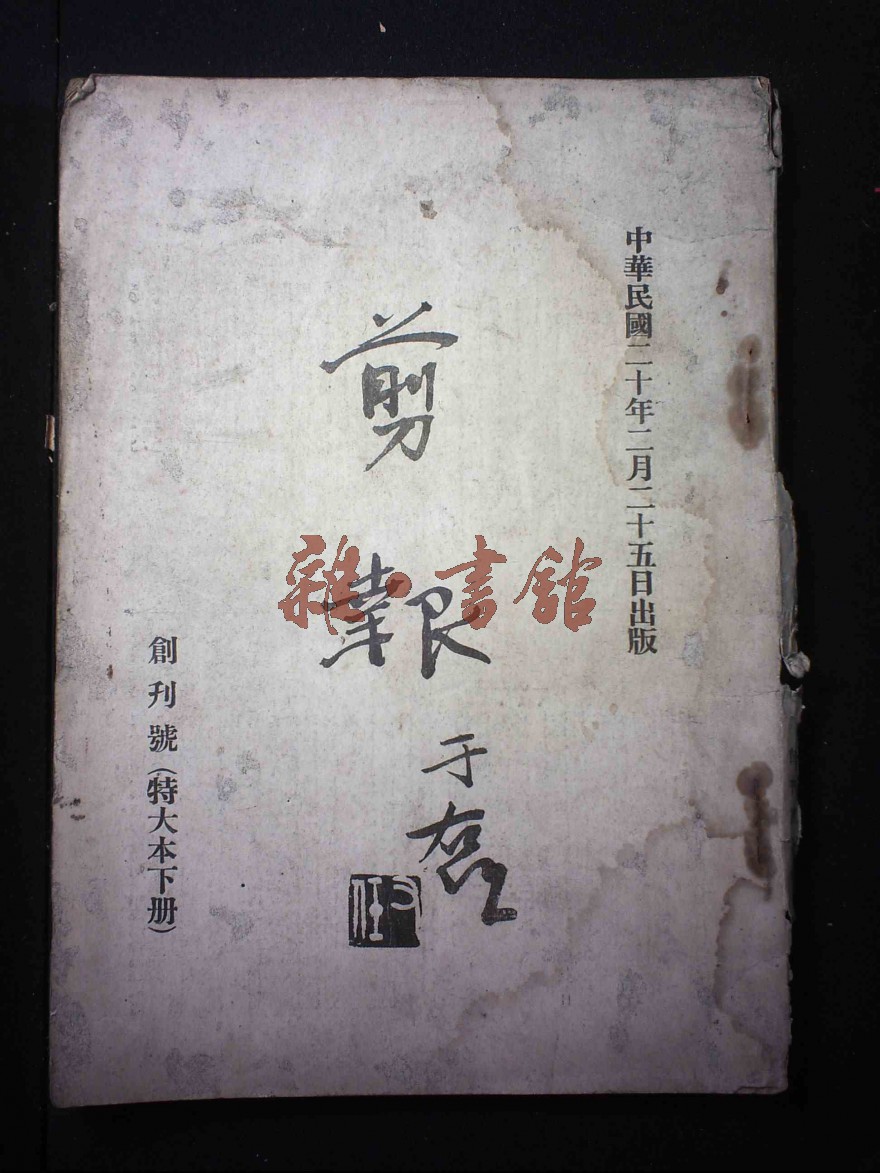 中華民國二十年二月二十五日出版
剪報
于右任
創刊號(特大本下册)
雜·書館